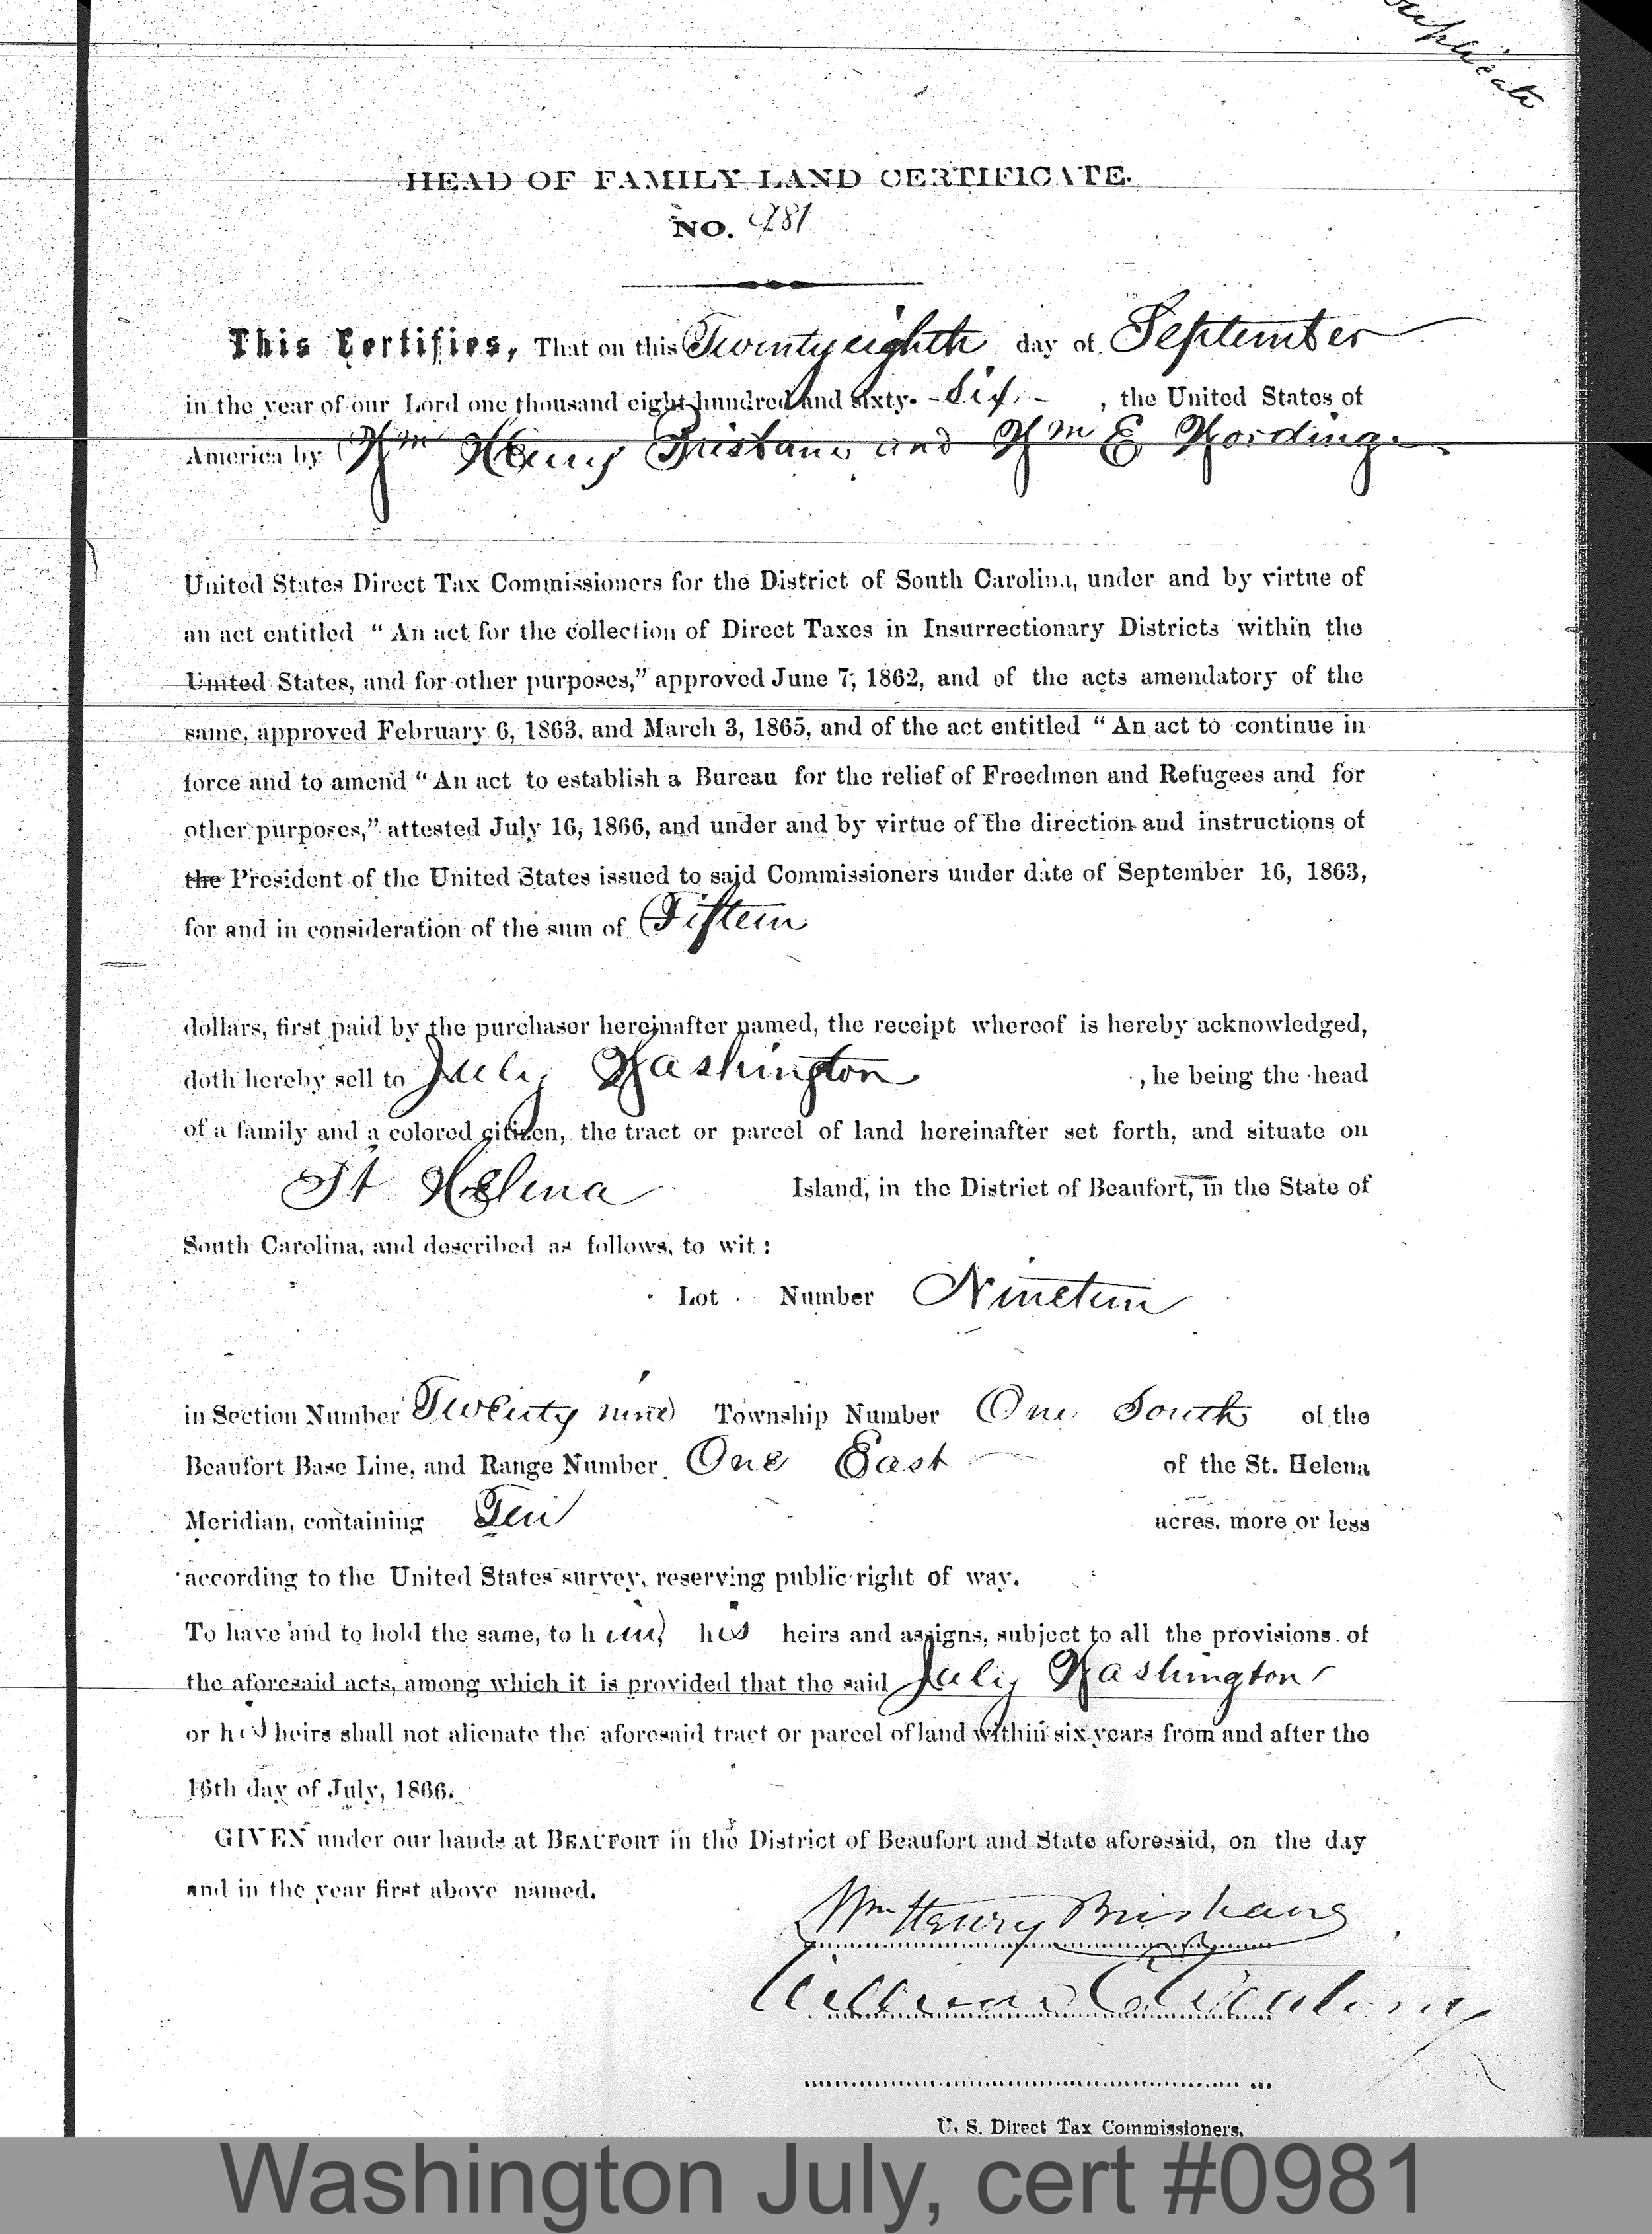 Duplicate
HEAD OF FAMILY LAND CERTIFICATE.
NO. 981
This Certifies, That on this Twenty eighth day of September
in the year of our Lord one thousand eight hundred and sixty- Six, the United States of
America by Wm Henry Brisbane and Wm E Wording
United States Direct Tax Commissioners for the District of South Carolina, under and by virtue of
an act entitled "An act for the collection of Direct Taxes in Insurrectionary Districts within the
United States, and for other purposes," approved June 7, 1862, and of the acts amendatory of the
same, approved February 6, 1863, and March 3, 1865, and of the act entitled "An act to continue in
force and to amend "An act to establish a Bureau for the relief of Freedmen and Refugees and for
other purposes," attested July 16, 1866, and under and by virtue of the direction and instructions of
the President of the United States issued to said Commissioners under date of September 16, 1863,
for and in consideration of the sum of Fifteen
dollars, first paid by the purchaser hereinafter named, the receipt whereof is hereby acknowledged,
doth hereby sell to July Washington, he being the head
of a family and a colored citizen, the tract or parcel of land hereinafter set forth, and situate on
St Helena Island, in the District of Beaufort, in the State of
South Carolina, and described as follows, to wit:
Lot Number Nineteen
in Section Number Twenty nine Township Number One South of the
Beaufort Base Line, and Range Number One East of the St. Helena
Meridian, containing Ten acres, more or less
according to the United States survey, reserving public right of way.
To have and to hold the same, to him, his heirs and assigns, subject to all the provisions of
the aforesaid acts, among which it is provided that the said July Washington
or his heirs shall not alienate the aforesaid tract or parcel of land within six years from and after the
16th day of July, 1866.
GIVEN under our hands at BEAUFORT in the District of Beaufort and State aforesaid, on the day
and in the year first above named.
Wm Henry Brisbane
William E Wording
U. S. Direct Tax Commissioners.
Washington July, cert #0981